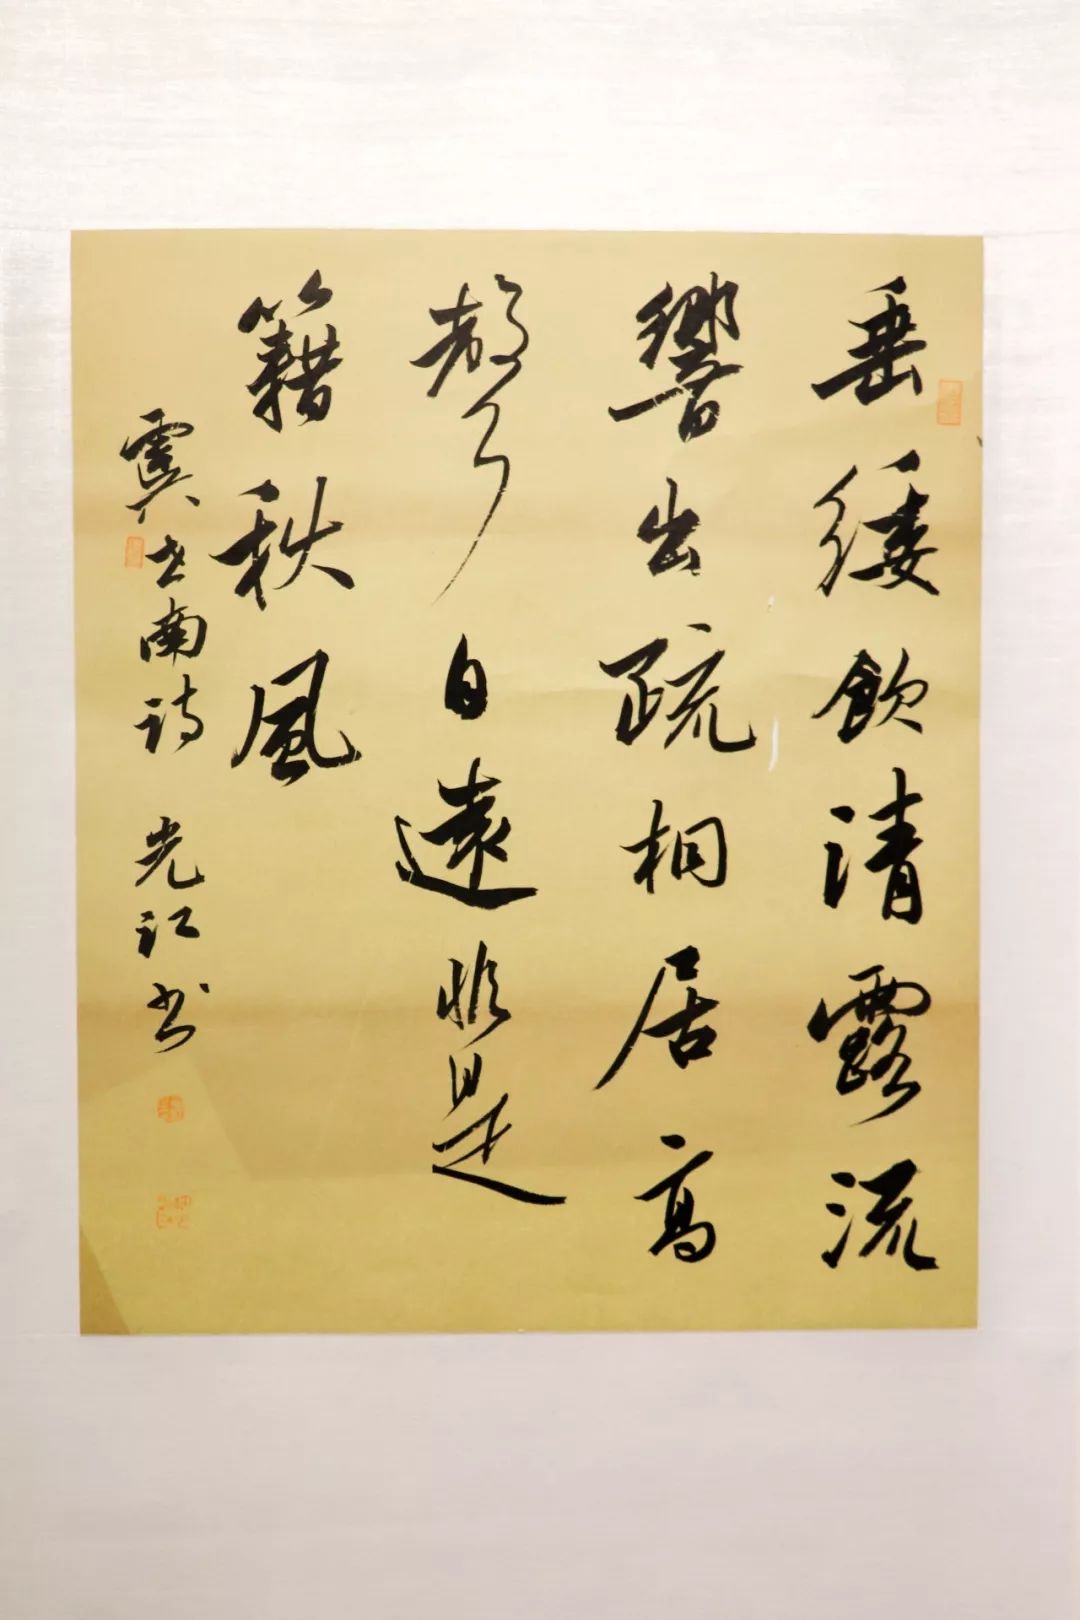 垂緌飲清露流
響出疏桐居高
聲自遠非是
籍秋風
虞世南詩 光江书